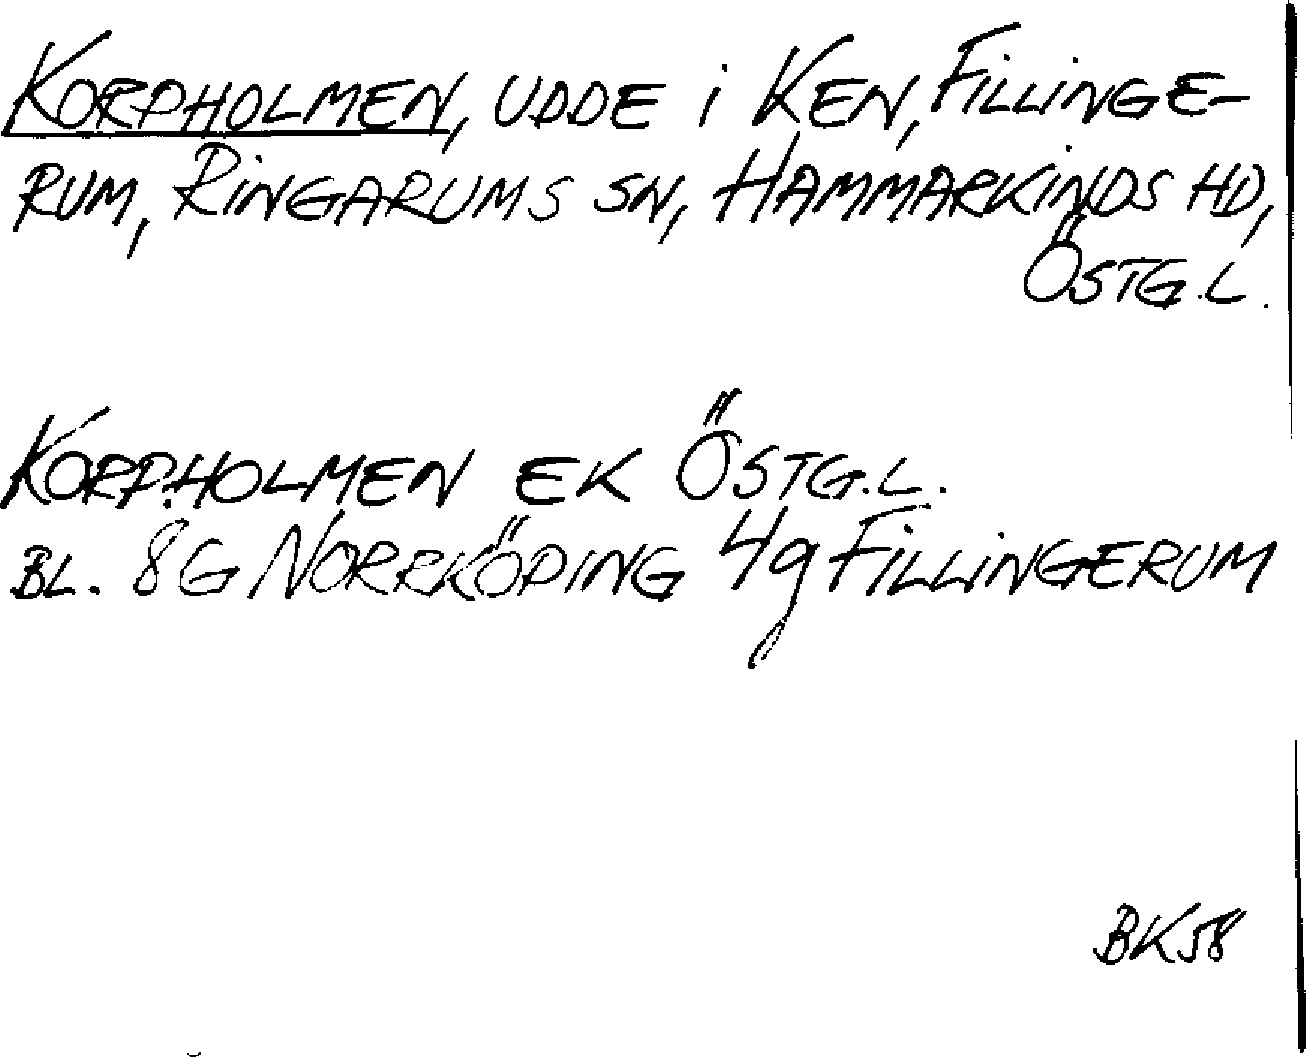 KORPHOLMEN, UDDE i KEN, FiLLiNGE-
RUM, RiNGARUMS SN, HAMMARKiNDS HD,
ÖSTG.L.
KORPHOLMEN EK ÖSTG.L.
BL. 8G NORRKÖPING 4g FiLLiNGERUM
BK58